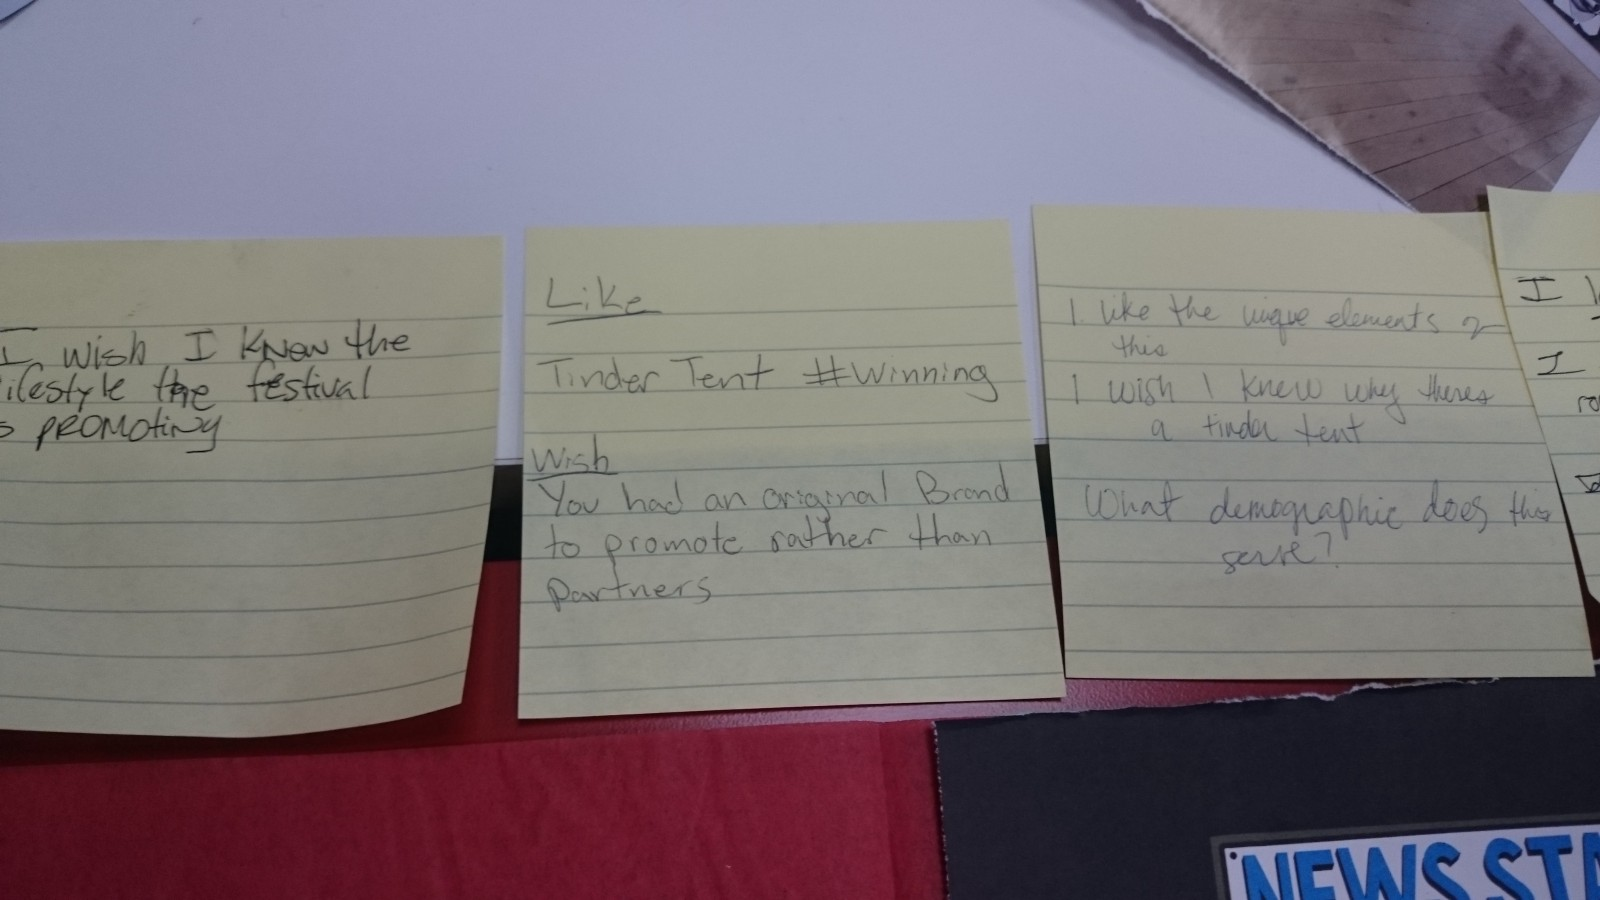 I wish I knew the
lifestyle the festival
s promoting
Like
Tinder Tent #Winning
Wish
You had an original Brand
to promote rather than
partners
I like the unique elements
this
I wish I knew why theres
a tinder tent
What demographic does this
serve?
I
I
NEWS STA